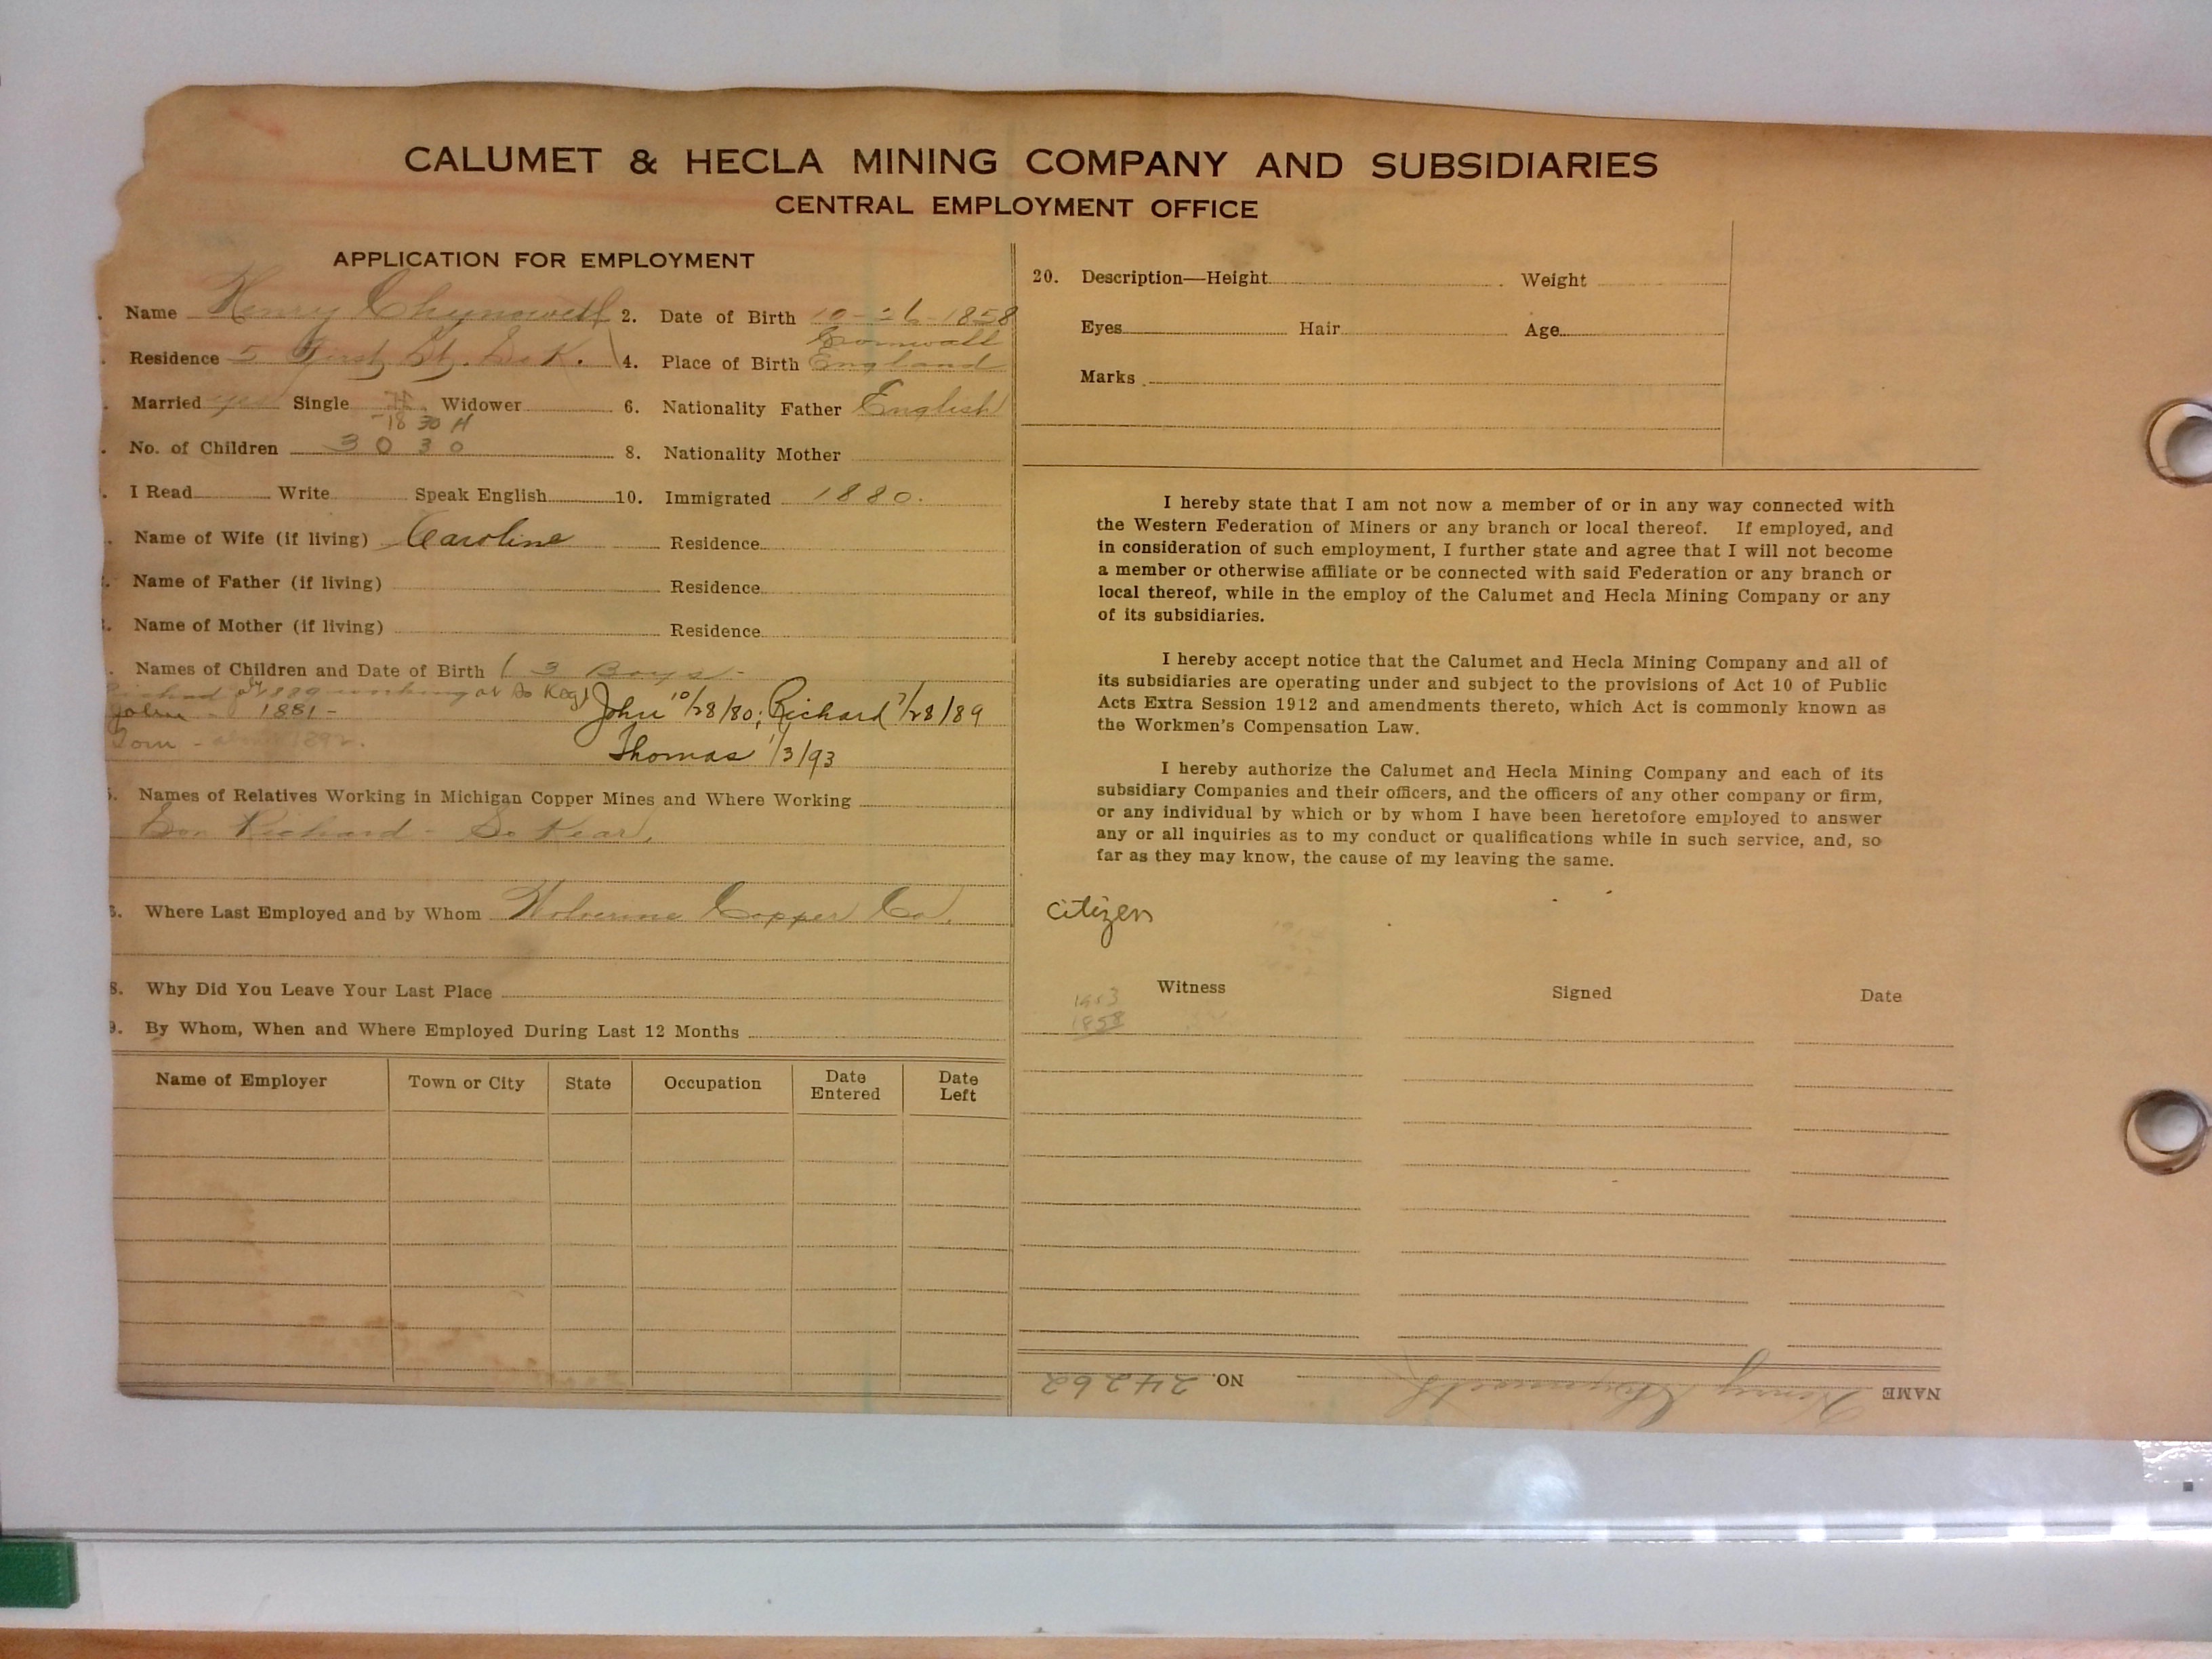 CALUMET & HECLA MINING COMPANY AND SUBSIDIARIES
CENTRAL EMPLOYMENT OFFICE
APPLICATION FOR EMPLOYMENT
. Name Henry Chynoweth 2. Date of Birth 10-26-1858
. Residence 5 First St. So K. 4. Place of Birth Cornwall England
. Married yes Single Widower 6. Nationality Father English
18 30 H
. No. of Children 3 0 3 0 8. Nationality Mother
. I Read Write Speak English 10. Immigrated 1880.
. Name of Wife (if living) Caroline Residence
. Name of Father (if living) Residence
. Name of Mother (if living) Residence
. Names of Children and Date of Birth (3 Boys-
Richard 1889 working at So Keg)
John - 1881 - John 10/28/80; Richard 7/28/89
Tom - about 1892. Thomas 1/3/93
5. Names of Relatives Working in Michigan Copper Mines and Where Working
Son Richard - So Kear.
6. Where Last Employed and by Whom Wolverine Copper Co.
8. Why Did You Leave Your Last Place
9. By Whom, When and Where Employed During Last 12 Months
Name of Employer Town or City State Occupation Date Entered Date Left
20. Description—Height Weight
Eyes Hair Age
Marks
I hereby state that I am not now a member of or in any way connected with
the Western Federation of Miners or any branch or local thereof. If employed, and
in consideration of such employment, I further state and agree that I will not become
a member or otherwise affiliate or be connected with said Federation or any branch or
local thereof, while in the employ of the Calumet and Hecla Mining Company or any
of its subsidiaries.
I hereby accept notice that the Calumet and Hecla Mining Company and all of
its subsidiaries are operating under and subject to the provisions of Act 10 of Public
Acts Extra Session 1912 and amendments thereto, which Act is commonly known as
the Workmen's Compensation Law.
I hereby authorize the Calumet and Hecla Mining Company and each of its
subsidiary Companies and their officers, and the officers of any other company or firm,
or any individual by which or by whom I have been heretofore employed to answer
any or all inquiries as to my conduct or qualifications while in such service, and, so
far as they may know, the cause of my leaving the same.
citizen
Witness Signed Date
1858
NAME Henry Chynoweth NO. 24262